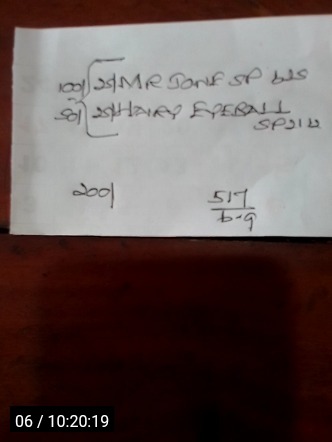 100/ 25/ MR JONE SP 625
50/ 25/ HAIRY EYEBALL
SP212
200/
517
b-9
06 / 10:20:19